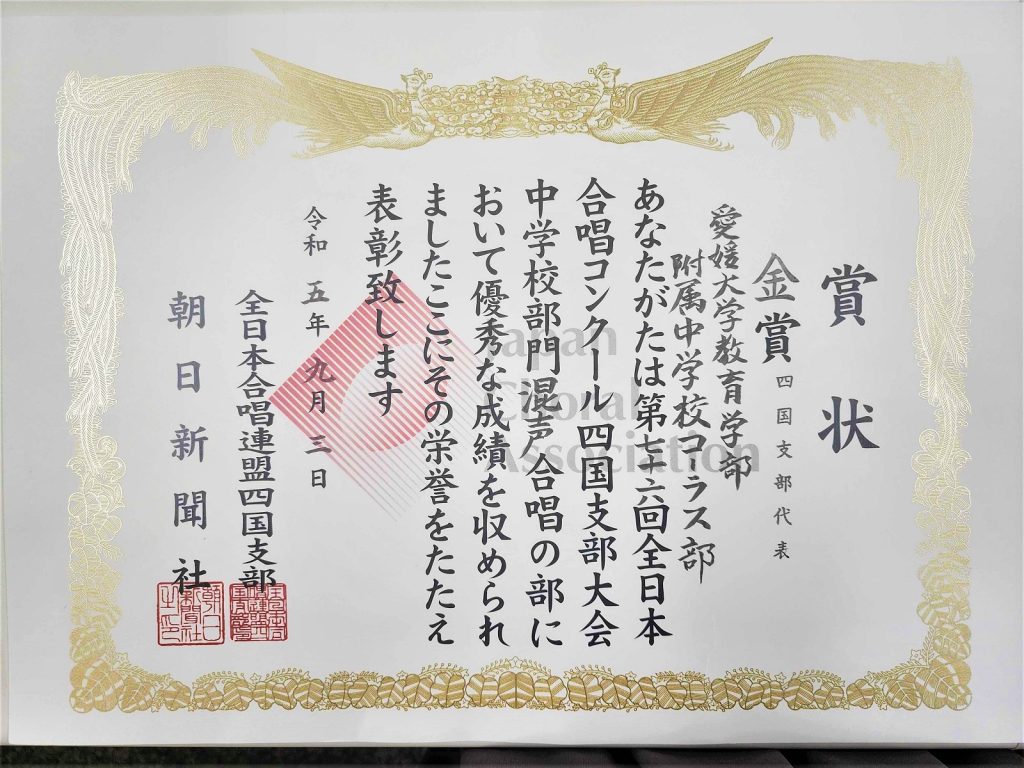 賞状
金賞 四国支部代表
愛媛大学教育学部
附属中学校コーラス部
あなたがたは第七十六回全日本
合唱コンクール四国支部大会
中学校部門混声合唱の部に
おいて優秀な成績を収められ
ましたここにその栄誉をたたえ
表彰致します
令和五年九月三日
全日本合唱連盟四国支部
朝日新聞社
Japan
Choral
Association
朝日新聞社之印